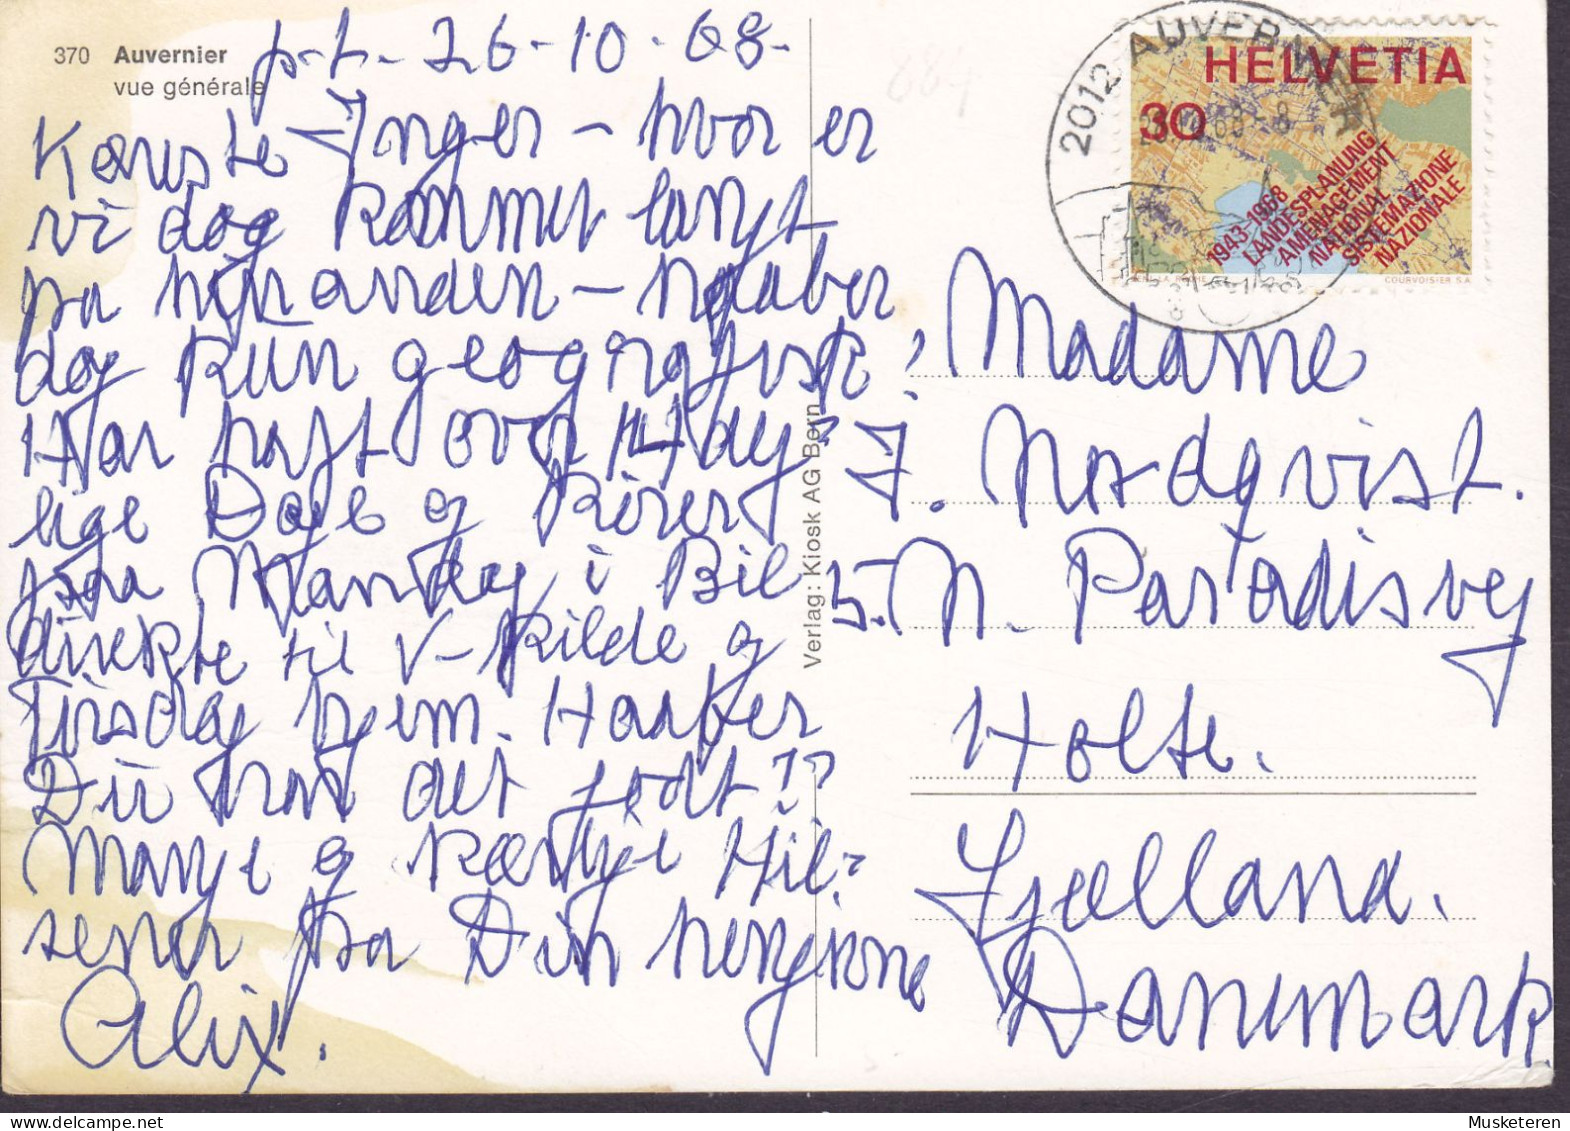 370 Auvernier
vue générale
p.t. 26-10-68-
Kæreste Inger - hvor er
vi dog kommet langt
fra hinanden -
dog kun geografisk!
Har haft over 14 dej-
lige Dage og kører
paa Mandag i Bil
direkte til V-Kilde og
Tirsdag hjem. Haaber
Du har det godt??
Mange og kærlige Hil-
sener fra Din hengivne
Alix.
Verlag: Kiosk AG Bern
2012 AUVERNIER
HELVETIA
30
1943-1968
LANDESPLANUNG
AMENAGEMENT
NATIONAL
SISTEMAZIONE
NAZIONALE
COURVOISIER S.A.
Madame
I. Nordqvist.
5. N. Paradisvej
Holte.
Sjælland.
Danmark.
884
Musketeren